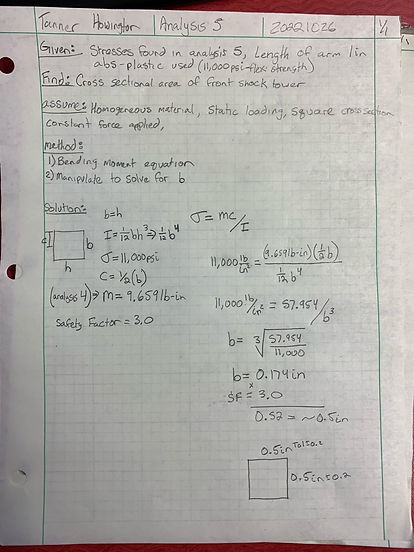 Tanner Howington Analysis 5 20221026 1/1
Given: Stresses found in analysis 5, Length of arm 1in
abs-plastic used (11,000psi-flex strength)
Find: Cross sectional area of front shock tower
assume: Homogeneous material, Static loading, square cross section
constant force applied,
method:
1) Bending Moment equation
2) Manipulate to solve for b
Solution:
b=h
I=1/12bh³ ⇒ 1/12b⁴
σ=11,000psi
C=1/2(b)
(analysis 4) ⇒ M=9.659lb-in
Safety Factor = 3.0
b
h
σ=mc/I
11,000 lb/in² = (9.659lb-in)(1/2b) / 1/12b⁴
11,000 lb/in² = 57.954/b³
b= 3√57.954/11,000
b=0.174in
x
SF=3.0
0.52 = ~0.5in
0.5in Tol±0.2
0.5in±0.2